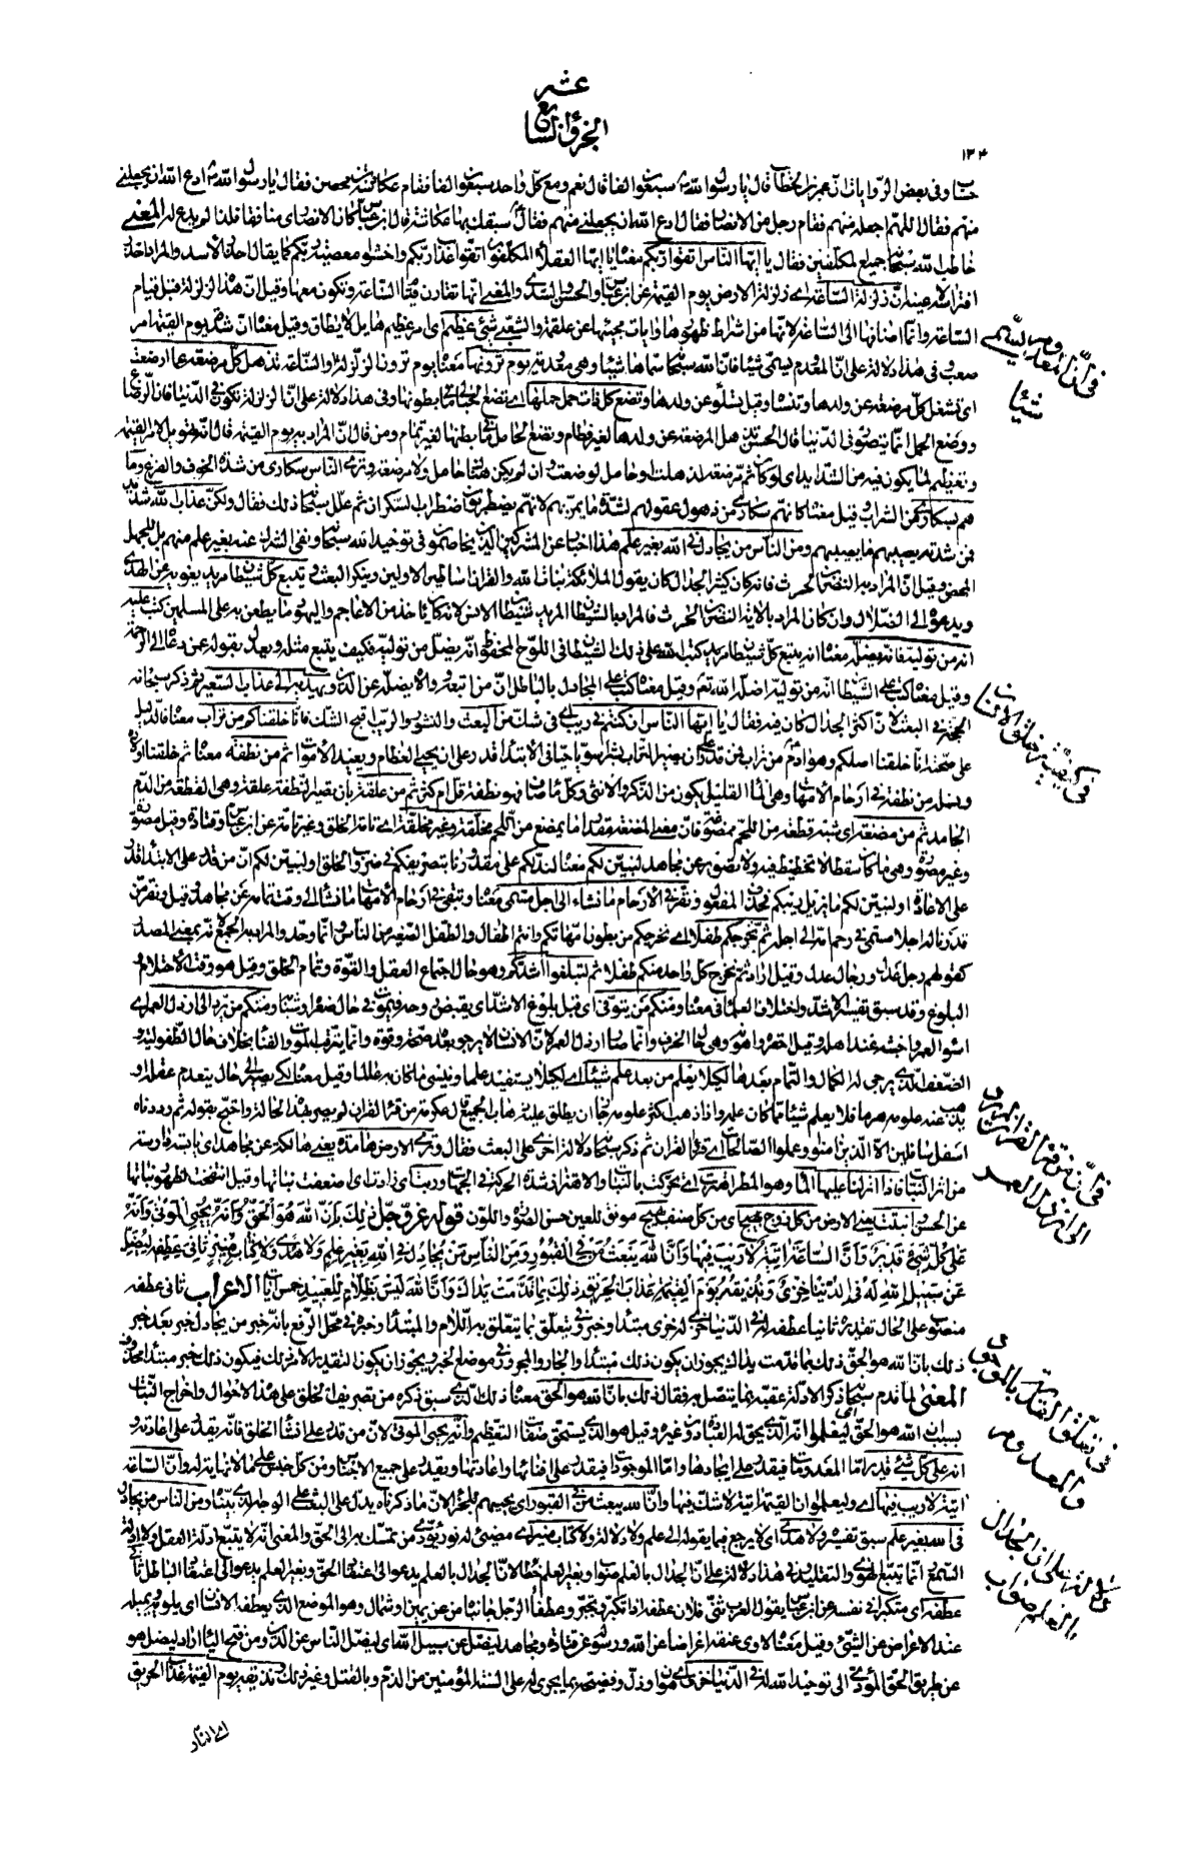 عشر
الجزؤ السابع
١٣٤
حساب وفى بعض الروايات ان عمر بن الخطاب قال يا رسول الله سبعون الفا قال نعم ومع كل واحد سبعون الفا فقام عكاشة بن محصن فقال يا رسول الله ادع الله ان يجعلنى
منهم فقال اللهم اجعله منهم فقام رجل من الانصار فقال ادع الله ان يجعلنى منهم فقال سبقك بها عكاشة قال ابن عباس كان الانصارى منافقا فلذا لم يدع له المعنى
خاطب الله سبحانه جميع المكلفين فقال يا ايها الناس اتقوا ربكم معناه يا ايها العقلاء المكلفون اتقوا عذاب ربكم واخشوا معصية ربكم كما يقال احذر الاسد والمراد احذر
افتراسه لا عينه ان زلزلة الساعة اى زلزلة الارض يوم القيمة عن ابن عباس والحسن والسدى والمعنى انها تقارن قيام الساعة وتكون معها وقيل ان هذه الزلزلة قبل قيام
الساعة وانما اضافها الى الساعة لانها من اشراط ظهورها وايات مجيئها عن علقمة والشعبى شىء عظيم اى امر عظيم هايل لا يطاق وقيل معناه ان شدة يوم القيمة امر
صعب وفى هذا دلالة على ان المعدوم يسمى شيئا فان الله سبحانه سماها شيئا وهى معدومة يوم ترونها معناه يوم ترون الزلزلة او الساعة تذهل كل مرضعة عما ارضعت
اى تشغل كل مرضعة عن ولدها وتنساه وقيل تسلو عن ولدها وتضع كل ذات حمل حملها اى تضع الحبالى ما فى بطونها وفى هذا دلالة على ان الزلزلة تكون فى الدنيا فان الرضاع
ووضع الحمل انما يتصور فى الدنيا قال الحسن تذهل المرضعة عن ولدها لغير فطام وتضع الحامل ما فى بطنها لغير تمام ومن قال ان المراد به يوم القيمة قال انه تهويل لامر القيمة
وتعظيم لما يكون فيه من الشدايد اى لو كان ثم مرضعة لذهلت او حامل لوضعت وان لم يكن هناك حامل ولا مرضعة وترى الناس سكارى من شدة الخوف والفزع وما
هم بسكارى من الشراب وقيل معناه كانهم سكارى من ذهول عقولهم لشدة ما يمر بهم لانهم يضطربون اضطراب السكران ثم علل سبحانه ذلك فقال ولكن عذاب الله شديد
فمن شدته يصيبهم ما يصيبهم ومن الناس من يجادل فى الله بغير علم هذا اخبار عن المشركين الذين يخاصمون فى توحيد الله سبحانه ونفى الشرك عنه بغير علم منهم بل للجهل
المحض وقيل ان المراد به النضر بن الحرث فانه كان كثير الجدال وكان يقول الملائكة بنات الله والقران اساطير الاولين وينكر البعث ويتبع كل شيطان مريد يغويه عن الهدى
ويدعوه الى الضلال وان كان المراد بالاية النضر بن الحرث فالمراد بالشيطان المريد شيطان الانس لانه كان ياخذ من الاعاجم واليهود ما يطعن به على المسلمين كتب عليه
انه من تولاه فانه يضله معناه انه يتبع كل شيطان مريد كتب الله على ذلك الشيطان فى اللوح المحفوظ انه يضل من تولاه فكيف يتبع مثله ويعدل بقوله عمن دعاه الى الرحمة
وقيل معناه كتب على الشيطان انه من تولاه اضله الله تعالى وقيل معناه كتب على المجادل بالباطل ان من اتبعه ووالاه يضله عن الدين ويهديه الى عذاب السعير ثم ذكر سبحانه
الحجة فى البعث لان اكثر الجدال كان فيه فقال يا ايها الناس ان كنتم فى ريب اى فى شك من البعث والنشور والريب اقبح الشك فانا خلقناكم من تراب معناه فالدليل
على صحته انا خلقنا اصلكم وهو ادم من تراب فمن قدر على ان يصير التراب بشرا سويا حيا فى الابتداء قدر على ان يحيى العظام ويعيد الاموات ثم من نطفة معناه ثم خلقنا اولاده
ونسله من نطفة فى ارحام الامهات وهى الماء القليل يكون من الذكر والانثى وكل ماء صاف فهو نطفة قل ام كثر ثم من علقة بان يصير النطفة علقة وهى القطعة من الدم
الجامد ثم من مضغة اى شبه قطعة من اللحم ممضوغة فان معنى المضغة مقدار ما يمضغ من اللحم مخلقة وغير مخلقة اى تامة الخلق وغير تامة عن ابن عباس وقتادة وقيل مصورة
وغير مصورة وهى ما كان سقطا لا تخطيط فيه ولا تصوير عن مجاهد لنبين لكم معناه لندلكم على مقدورنا بتصريفكم فى ضروب الخلق او لنبين لكم ان من قدر على الابتداء قدر
على الاعادة او لنبين لكم ما يزيل ريبكم فحذف المفعول ونقر فى الارحام ما نشاء الى اجل مسمى معناه ونبقى فى ارحام الامهات ما نشاء الى وقت تمامه عن مجاهد وقيل ونقر من
قدرنا له اجلا مسمى فى رحم امه الى اجله ثم نخرجكم طفلا اى نخرجكم من بطون امهاتكم وانتم اطفال والطفل الصغير من الناس وانما وحد والمراد به الجمع لانه بمعنى المصدر
كقولهم رجل عدل ورجال عدل وقيل اراد ثم نخرج كل واحد منكم طفلا ثم لتبلغوا اشدكم وهو حال اجتماع العقل والقوة وتمام الخلق وقيل هو وقت الاحتلام
البلوغ وقد سبق تفسير الاشد واختلاف العلماء فى معناه ومنكم من يتوفى اى قبل بلوغ الاشد اى يقبض روحه فيموت فى حال صغره او شبابه ومنكم من يرد الى ارذل العمر اى
اسوأ العمر واخبثه عند اهله وقيل احقره واهونه وهى حال الخرف وانما صار ارذل العمر لان الانسان لا يرجو بعده صحة وقوة وانما يترقب الموت والفناء بخلاف حال الطفولية و
الضعف الذى يرجى له الكمال والتمام بعدها لكيلا يعلم من بعد علم شيئا اى لكيلا يستفيد علما وينسى ما كان به عالما وقيل معناه لكى يصير الى حال ينعدم عقله او
يذهب عنه علومه هرما فلا يعلم شيئا مما كان علمه واذا ذهب اكثر علومه جاز ان يطلق عليه ذهاب الجميع قال عكرمة من قرأ القران لم يصر بهذه الحالة واحتج بقوله ثم رددناه
اسفل سافلين الا الذين امنوا وعملوا الصالحات اى قرؤا القران ثم ذكر سبحانه دلالة اخرى على البعث فقال وترى الارض هامدة يعنى هالكة عن مجاهد اى يابسة دارسة
من اثر النبات فاذا انزلنا عليها الماء وهو المطر اهتزت اى تحركت بالنبات والاهتزاز شدة الحركة فى الجهات وربت اى زادت اى اضعفت نباتها وقيل انتفخت لظهور نباتها
عن الحسن وانبتت يعنى الارض من كل زوج بهيج اى من كل صنف بهيج مونق للعين حسن الصورة واللون قوله عز وجل ذلك بان الله هو الحق وانه يحيى الموتى وانه
على كل شىء قدير وان الساعة اتية لا ريب فيها وان الله يبعث من فى القبور ومن الناس من يجادل فى الله بغير علم ولا هدى ولا كتاب منير ثانى عطفه ليضل
عن سبيل الله له فى الدنيا خزى ونذيقه يوم القيمة عذاب الحريق ذلك بما قدمت يداك وان الله ليس بظلام للعبيد خمس ايات الاعراب ثانى عطفه
منصوب على الحال تقديره ثانيا عطفه له فى الدنيا خزى له خزى مبتدأ وخبر وفى يتعلق بما يتعلق به اللام والمبتدأ وخبره فى محل الرفع بانه خبر من يجادل خبر بعد خبر
ذلك بان الله هو الحق ذلك بما قدمت يداك يجوز ان يكون ذلك مبتدأ والجار والمجرور فى موضع الخبر ويجوز ان يكون التقدير الامر ذلك فيكون ذلك خبر مبتدأ محذوف
المعنى لما قدم سبحانه ذكر الادلة عقبه بما يتصل به فقال ذلك بان الله هو الحق معناه ذلك الذى سبق ذكره من تصريف الخلق على هذه الاحوال واخراج النبات
بسبب ان الله هو الحق اى ليعلموا انه الذى يحق له العبادة دون غيره وقيل هو الذى يستحق صفات التعظيم وانه يحيى الموتى لان من قدر على انشاء الخلق فانه يقدر على اعادته و
انه على كل شىء قدير اما المعدومات فيقدر على ايجادها واما الموجودات فيقدر على افنائها واعادتها ويقدر على جميع الاجناس ومن كل جنس على ما لا نهاية له وان الساعة
اتية لا ريب فيها اى وليعلموا ان القيمة اتية لا شك فيها وان الله يبعث من فى القبور اى يحييهم للجزاء لان ما ذكرناه يدل على البعث على الوجه الذى بيناه ومن الناس من يجادل
فى الله بغير علم سبق تفسيره ولا هدى اى لا يرجع فيما يقوله الى علم ولا دلالة ولا كتاب منير اى مضىء له نور يؤدى من تمسك به الى الحق والمعنى انه لا يتبع ادلة العقل ولا ادلة
السمع انما يتبع الهوى والتقليد وفى هذا دلالة على ان الجدال بالعلم صواب وبغير العلم خطأ لان الجدال بالعلم يدعو الى اعتقاد الحق وبغير العلم يدعو الى اعتقاد الباطل ثانى
عطفه اى متكبرا فى نفسه عن ابن عباس يقول العرب ثنى فلان عطفه اذا تكبر وتجبر وعطفا الرجل جانباه من عن يمين او شمال وهو الموضع الذى يعطفه الانسان اى يلويه ويميله
عند الاعراض عن الشىء وقيل معناه لاوى عنقه اعراضا عن الله ورسوله عن قتادة ومجاهد ليضل عن سبيل الله اى ليضل الناس عن الدين ومن فتح الياء اراد ليضل هو
عن طريق الحق المؤدى الى توحيد الله له فى الدنيا خزى اى هوان وذل وفضيحة بما يجرى له على السنة المؤمنين من الذم وبالقتل وغير ذلك ونذيقه يوم القيمة عذاب الحريق
اى النار
فى ان المعدوم يسمى
شيئا
فى كيفية خلق الانسان
فى ان من قرأ القران لم يرد
الى ارذل العمر
فى تعلق القدرة بالموجود
والمعدوم
فى ان الجدال
بالعلم صواب